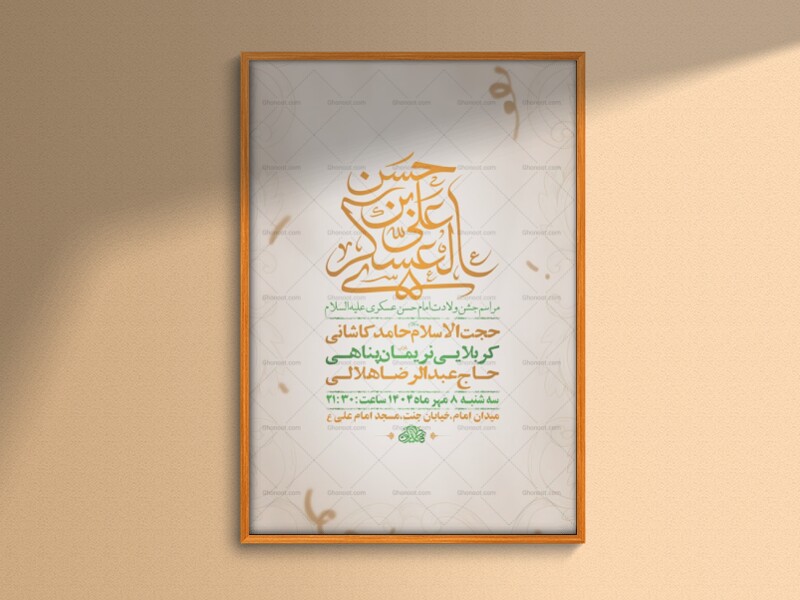 حسن
بن
علی
العسکری
مراسم جشن ولادت امام حسن عسکری علیه السلام
حجت الاسلام حامد کاشانی
کربلایی نریمان پناهی
حاج عبدالرضا هلالی
سه شنبه ۸ مهر ماه ۱۴۰۴ ساعت: ۲۱:۳۰
میدان امام، خیابان جنت، مسجد امام علی ع
Ghonoot.com